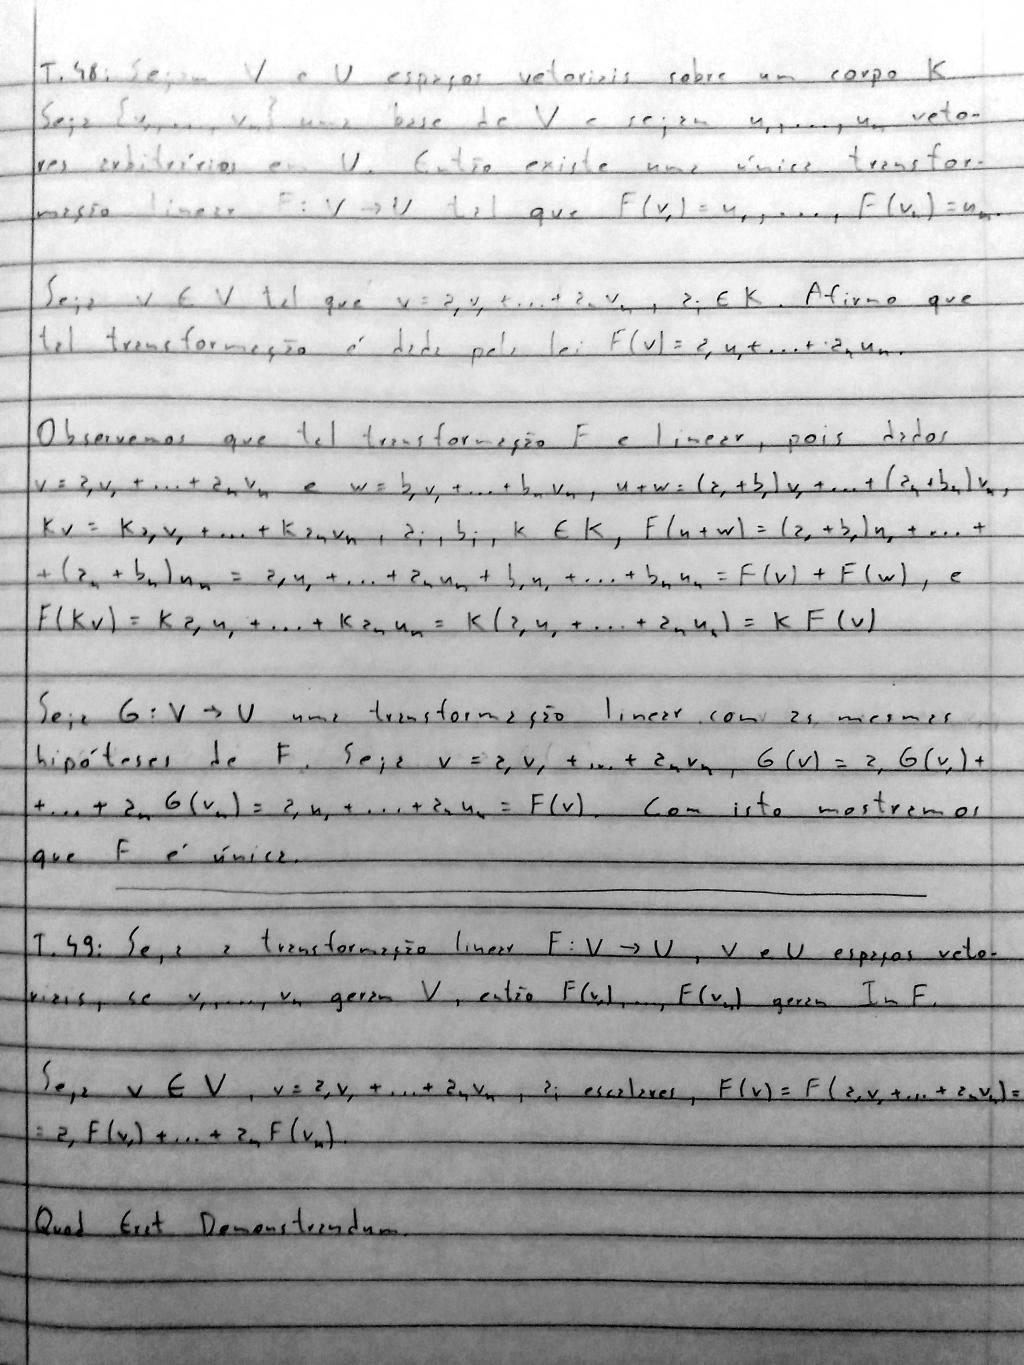 T.48: Sejam V e U espaços vetoriais sobre um corpo K
Seja {v₁,...,vₙ} uma base de V e sejam u₁,...,uₙ veto-
res arbitrários em U. Então existe uma única transfor-
mação linear F:V→U tal que F(v₁)=u₁,...,F(vₙ)=uₙ.
Seja v ∈ V tal que v=a₁v₁+...+aₙvₙ, aᵢ ∈ K. Afirmo que
tal transformação é dada pela lei F(v)=a₁u₁+...+aₙuₙ.
Observemos que tal transformação F e linear, pois dados
v=a₁v₁+...+aₙvₙ e w=b₁v₁+...+bₙvₙ, u+w=(a₁+b₁)v₁+...+(aₙ+bₙ)vₙ,
Kv=Ka₁v₁+...+Kaₙvₙ, aᵢ, bᵢ, k ∈ K, F(u+w)=(a₁+b₁)u₁+...+
+(aₙ+bₙ)uₙ=a₁u₁+...+aₙuₙ+b₁u₁+...+bₙuₙ=F(v)+F(w), e
F(Kv)=Ka₁u₁+...+Kaₙuₙ=K(a₁u₁+...+aₙuₙ)=KF(v)
Seja G:V→U uma transformação linear com as mesmas
hipóteses de F. Seja v=a₁v₁+...+aₙvₙ, G(v)=a₁G(v₁)+
+...+aₙG(vₙ)=a₁u₁+...+aₙuₙ=F(v). Com isto mostramos
que F é única.
T.49: Seja a transformação linear F:V→U, V e U espaços veto-
riais, se v₁,...,vₙ geram V, então F(v₁),...,F(vₙ) geram Im F.
Seja v ∈ V, v=a₁v₁+...+aₙvₙ, aᵢ escalares, F(v)=F(a₁v₁+...+aₙvₙ)=
=a₁F(v₁)+...+aₙF(vₙ).
Quod Erat Demonstrandum.